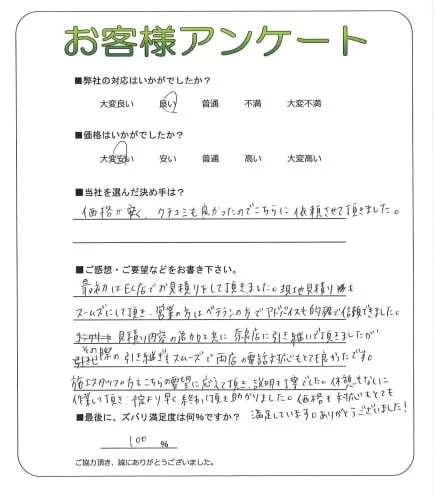 お客様アンケート
■弊社の対応はいかがでしたか？
大変良い 良い 普通 不満 大変不満
■価格はいかがでしたか？
大変安い 安い 普通 高い 大変高い
■当社を選んだ決め手は？
価格が安く、クチコミも良かったのでこちらに依頼させて頂きました。
■ご感想・ご要望などをお書き下さい。
最初はEC店でお見積りをして頂きました。現地見積り
スムーズにして頂き、営業の方はベテランの方でアドバイスも的確で信頼できました。
見積り内容の追加りと共に奈良店に引き継いで頂きましたが
その際の引き継ぎもスムーズで両店の電話対応もとても良かったです。
施工スタッフの方もこちらの要望に応えて頂き、説明も丁寧でした。休憩もなしに
作業して頂き、予定より早く終わって頂き助かりました。価格も対応もとても
■最後に、ズバリ満足度は何％ですか？ 満足しています。ありがとうございました！
100 %
ご協力頂き、誠にありがとうございました。